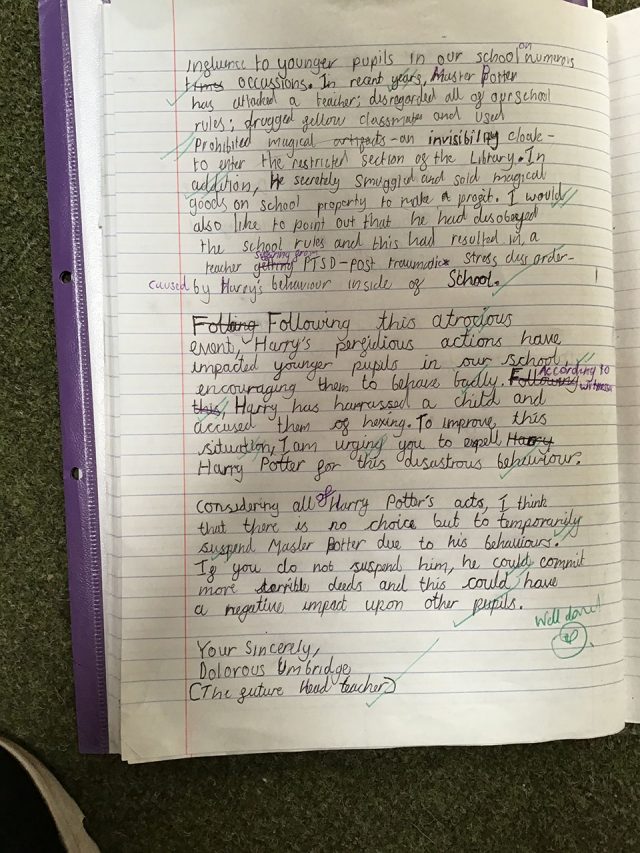 influence to younger pupils in our school on numerous
times occassions. In recent years, Master Potter
has attacked a teacher; disregarded all of our school
rules; drugged fellow classmates and used
Prohibited magical artifacts - an invisibility cloak -
to enter the restricted section of the Library. In
addition, He secretely smuggled and sold magical
goods on school property to make a profit. I would
also like to point out that he had disobeyed
the school rules and this had resulted in a
teacher getting suffering from PTSD - post traumatic stress disorder -
caused by Harry's behaviour inside of School.
Following Following this atrocious
event, Harry's perfidious actions have
impacted younger pupils in our school,
encouraging them to behave badly. Following According to
this, witness Harry has harrassed a child and
accused them of hexing. To improve this
situation, I am urging you to expell Harry
Harry Potter for this disastrous behaviour.
Considering all of Harry Potter's acts, I think
that there is no choice but to temporarily
suspend Master Potter due to his behaviours.
If you do not suspend him, he could commit
more terrible deeds and this could have
a negative impact upon other pupils.
Well done!
Your Sincerely,
Dolorous Umbridge
(The future Head teacher)